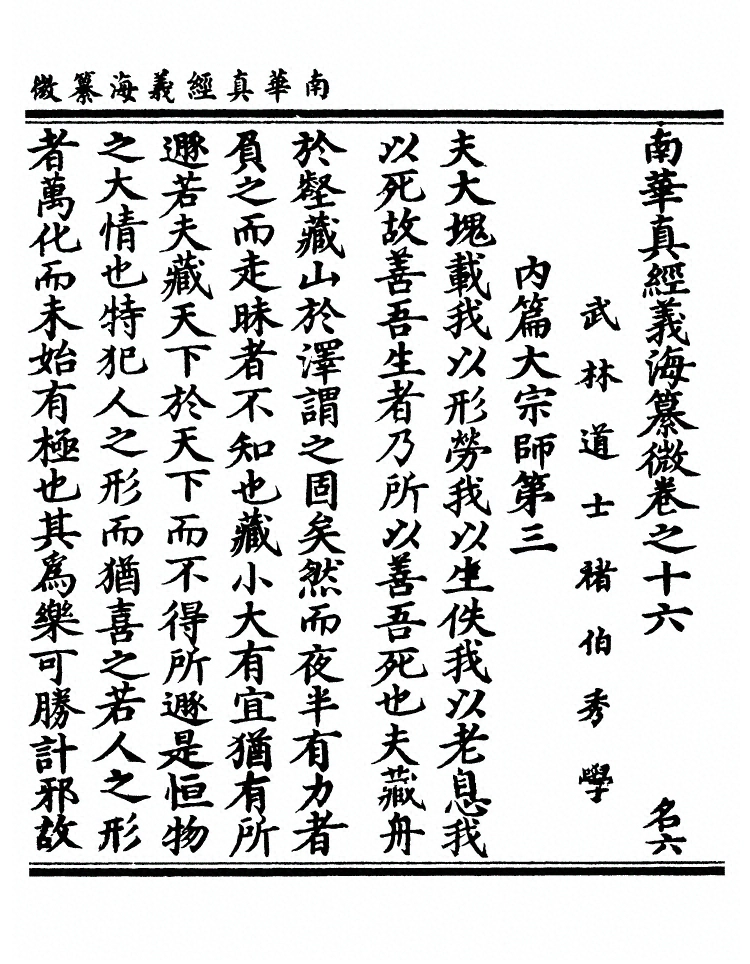 南華真經義海纂微
南華真經義海纂微卷之十六 名六
武林道士褚伯秀學
內篇大宗師第三
夫大塊載我以形勞我以生佚我以老息我
以死故善吾生者乃所以善吾死也夫藏舟
於壑藏山於澤謂之固矣然而夜半有力者
負之而走昧者不知也藏小大有宜猶有所
遯若夫藏天下於天下而不得所遯是恒物
之大情也特犯人之形而猶喜之若人之形
者萬化而未始有極也其為樂可勝計邪故